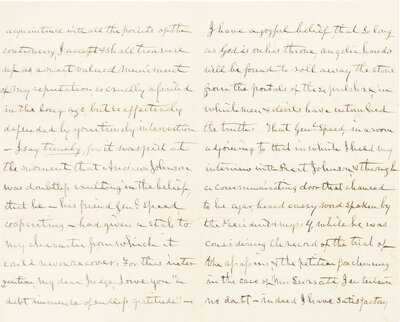 acquaintance with all the points of the
controversy, I accept & shall treasure
up as a most valued muniment
of my reputation so cruelly assailed
in the long ago, but so effectively
defended by your timely intervention
– I say timely, for it was just at
the moment that Andrew Johnson
was doubtless exulting in the belief
that he – his friend Genl. Speed
cooperating – had given a stab to
my character from which it
could never recover. For this inter-
vention my dear Judge, I owe you "a
debt immense of endless gratitude" –
I have a gospel belief that so long
as God is on his throne, angelic hands
will be found to roll away the stone
from the portals of the sepulchre in
which men & devils have intombed
the truth. That Genl. Speed, in a room
adjoining to that in which I held my
interview with Prest Johnson & through
a communicating door that chanced
to be ajar heard every word spoken by
the President & myself while he was
considering the record of the trial of
the assassins & the petition for clemency
in the case of Mrs Surratt I entertain
no doubt – indeed I have satisfactory